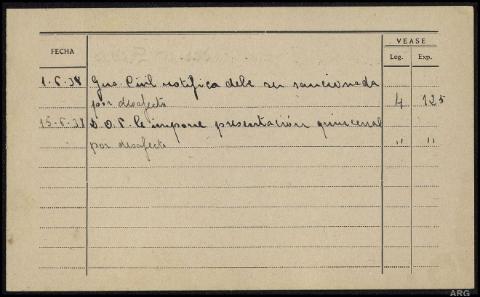 VEASE
FECHA Leg. Exp.
1-6-38 Gua. Civil notifica debe ser sancionada
por desafecta 4 125
15-6-38 D.O.P. le impone presentación quincenal
por desafecta " "
ARG